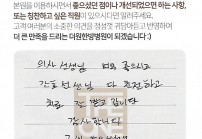 본원을 이용하시면서 좋으셨던 점이나 개선되었으면 하는 사항,
또는 칭찬하고 싶은 직원이 있으시다면 일러주세요.
고객 여러분의 소중한 의견을 정성껏 귀담아듣고 반영하여
더 큰 만족을 드리는 더원한방병원이 되겠습니다 :)
의사 선생님 너무 좋으시고
간호 선생님 다 친절하고
치료 잘 받고 갑니다
감사합니다